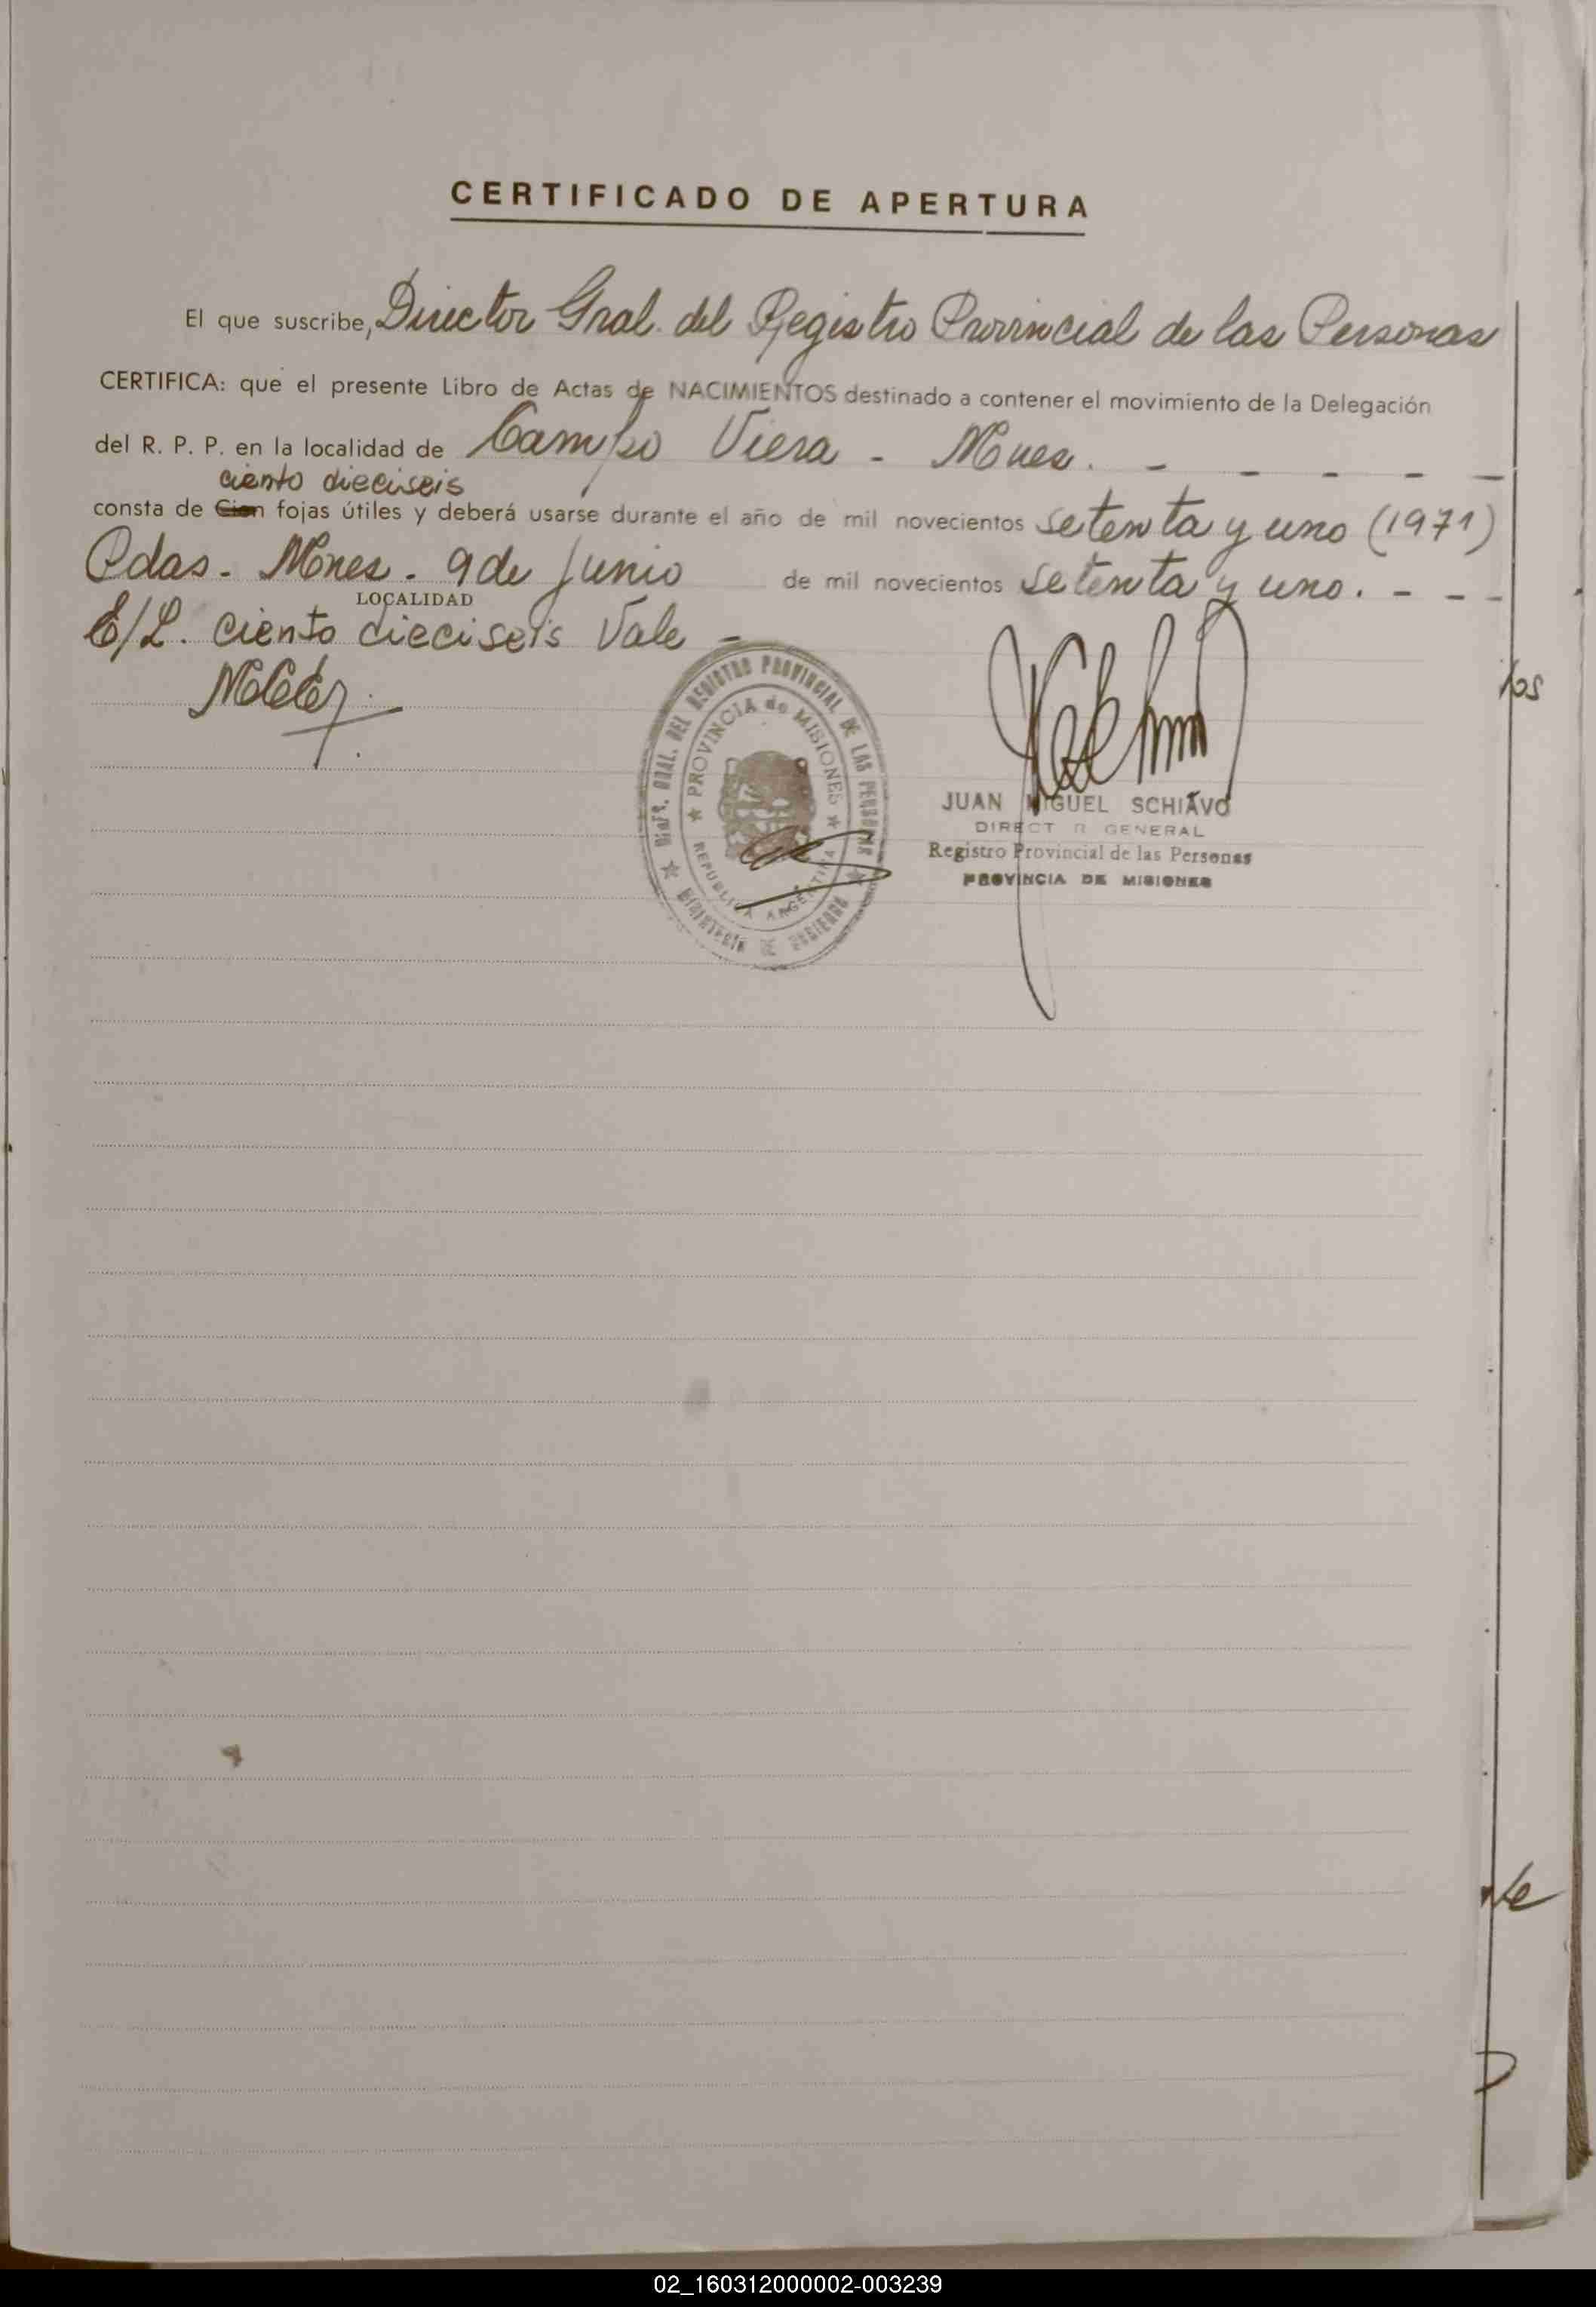 CERTIFICADO DE APERTURA
El que suscribe, Director Gral. del Registro Provincial de las Personas
CERTIFICA: que el presente Libro de Actas de NACIMIENTOS destinado a contener el movimiento de la Delegación
del R. P. P. en la localidad de Campo Viera - Mnes. - - - - - -
ciento dieciseis
consta de Cien fojas útiles y deberá usarse durante el año de mil novecientos setenta y uno (1971)
Pdas. Mnes. 9 de Junio de mil novecientos setenta y uno. - - -
LOCALIDAD
E/L. ciento dieciseis Vale -
GRAL. DEL REGISTRO PROVINCIAL DE LAS PERSONAS
PROVINCIA de MISIONES
REPUBLICA ARGENTINA
MINISTERIO DE GOBIERNO
JUAN MIGUEL SCHIAVO
DIRECT R GENERAL
Registro Provincial de las Personas
PROVINCIA DE MISIONES
02_160312000002-003239